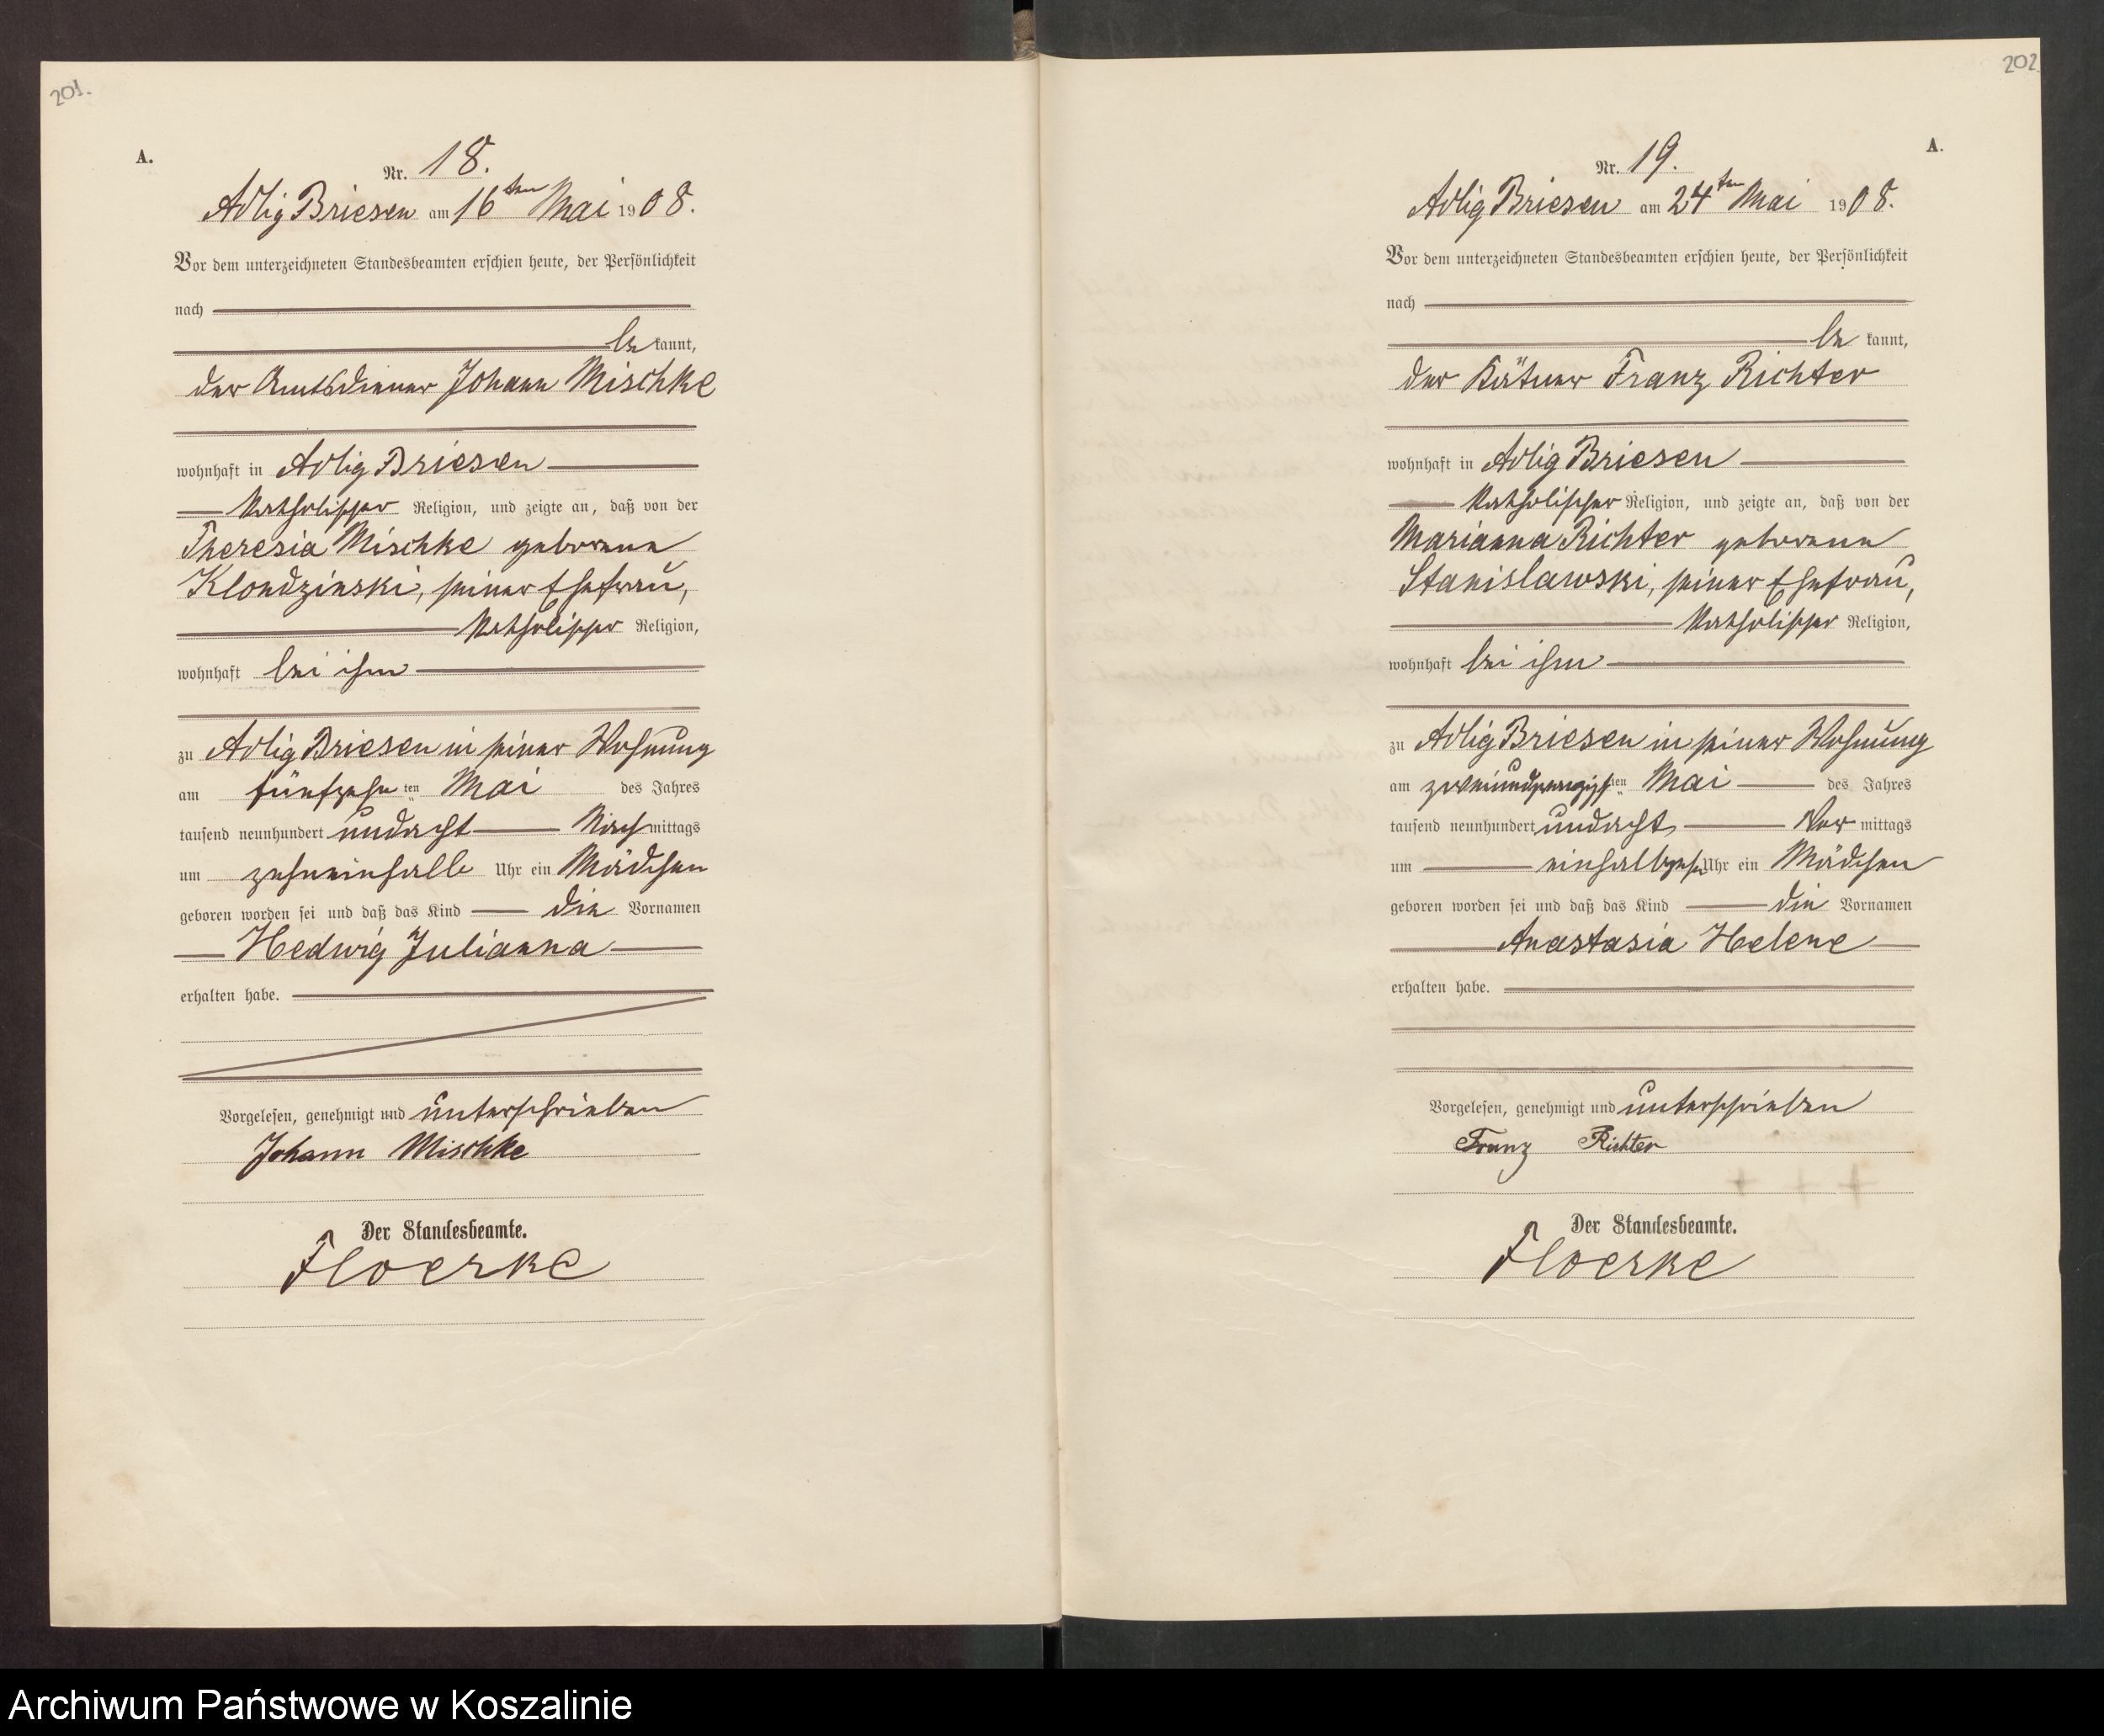 201.
A.
Nr. 18.
Adlig Briesen am 16ten Mai 1908.
Vor dem unterzeichneten Standesbeamten erschien heute, der Persönlichkeit
nach
be kannt,
der Amtsdiener Johann Mischke
wohnhaft in Adlig Briesen
katholischer Religion, und zeigte an, daß von der
Theresia Mischke geborene
Klondzinski, seiner Ehefrau,
katholischer Religion,
wohnhaft bei ihm
zu Adlig Briesen in seiner Wohnung
am fünfzehnten Mai des Jahres
tausend neunhundert undacht Nachmittags
um zehneinhalb Uhr ein Mädchen
geboren worden sei und daß das Kind die Vornamen
Hedwig Julianna
erhalten habe.
Vorgelesen, genehmigt und unterschrieben
Johann Mischke
Der Standesbeamte.
Floerke
202.
A.
Nr. 19.
Adlig Briesen am 24ten Mai 1908.
Vor dem unterzeichneten Standesbeamten erschien heute, der Persönlichkeit
nach
be kannt,
der Kätner Franz Richter
wohnhaft in Adlig Briesen
katholischer Religion, und zeigte an, daß von der
Marianna Richter geborene
Stanislawski, seiner Ehefrau,
katholischer Religion,
wohnhaft bei ihm
zu Adlig Briesen in seiner Wohnung
am zweiundzwanzigsten Mai des Jahres
tausend neunhundert undacht Vor mittags
um einhalbzehn Uhr ein Mädchen
geboren worden sei und daß das Kind die Vornamen
Anastasia Helene
erhalten habe.
Vorgelesen, genehmigt und unterschrieben
Franz Richter
Der Standesbeamte.
Floerke
Archiwum Państwowe w Koszalinie